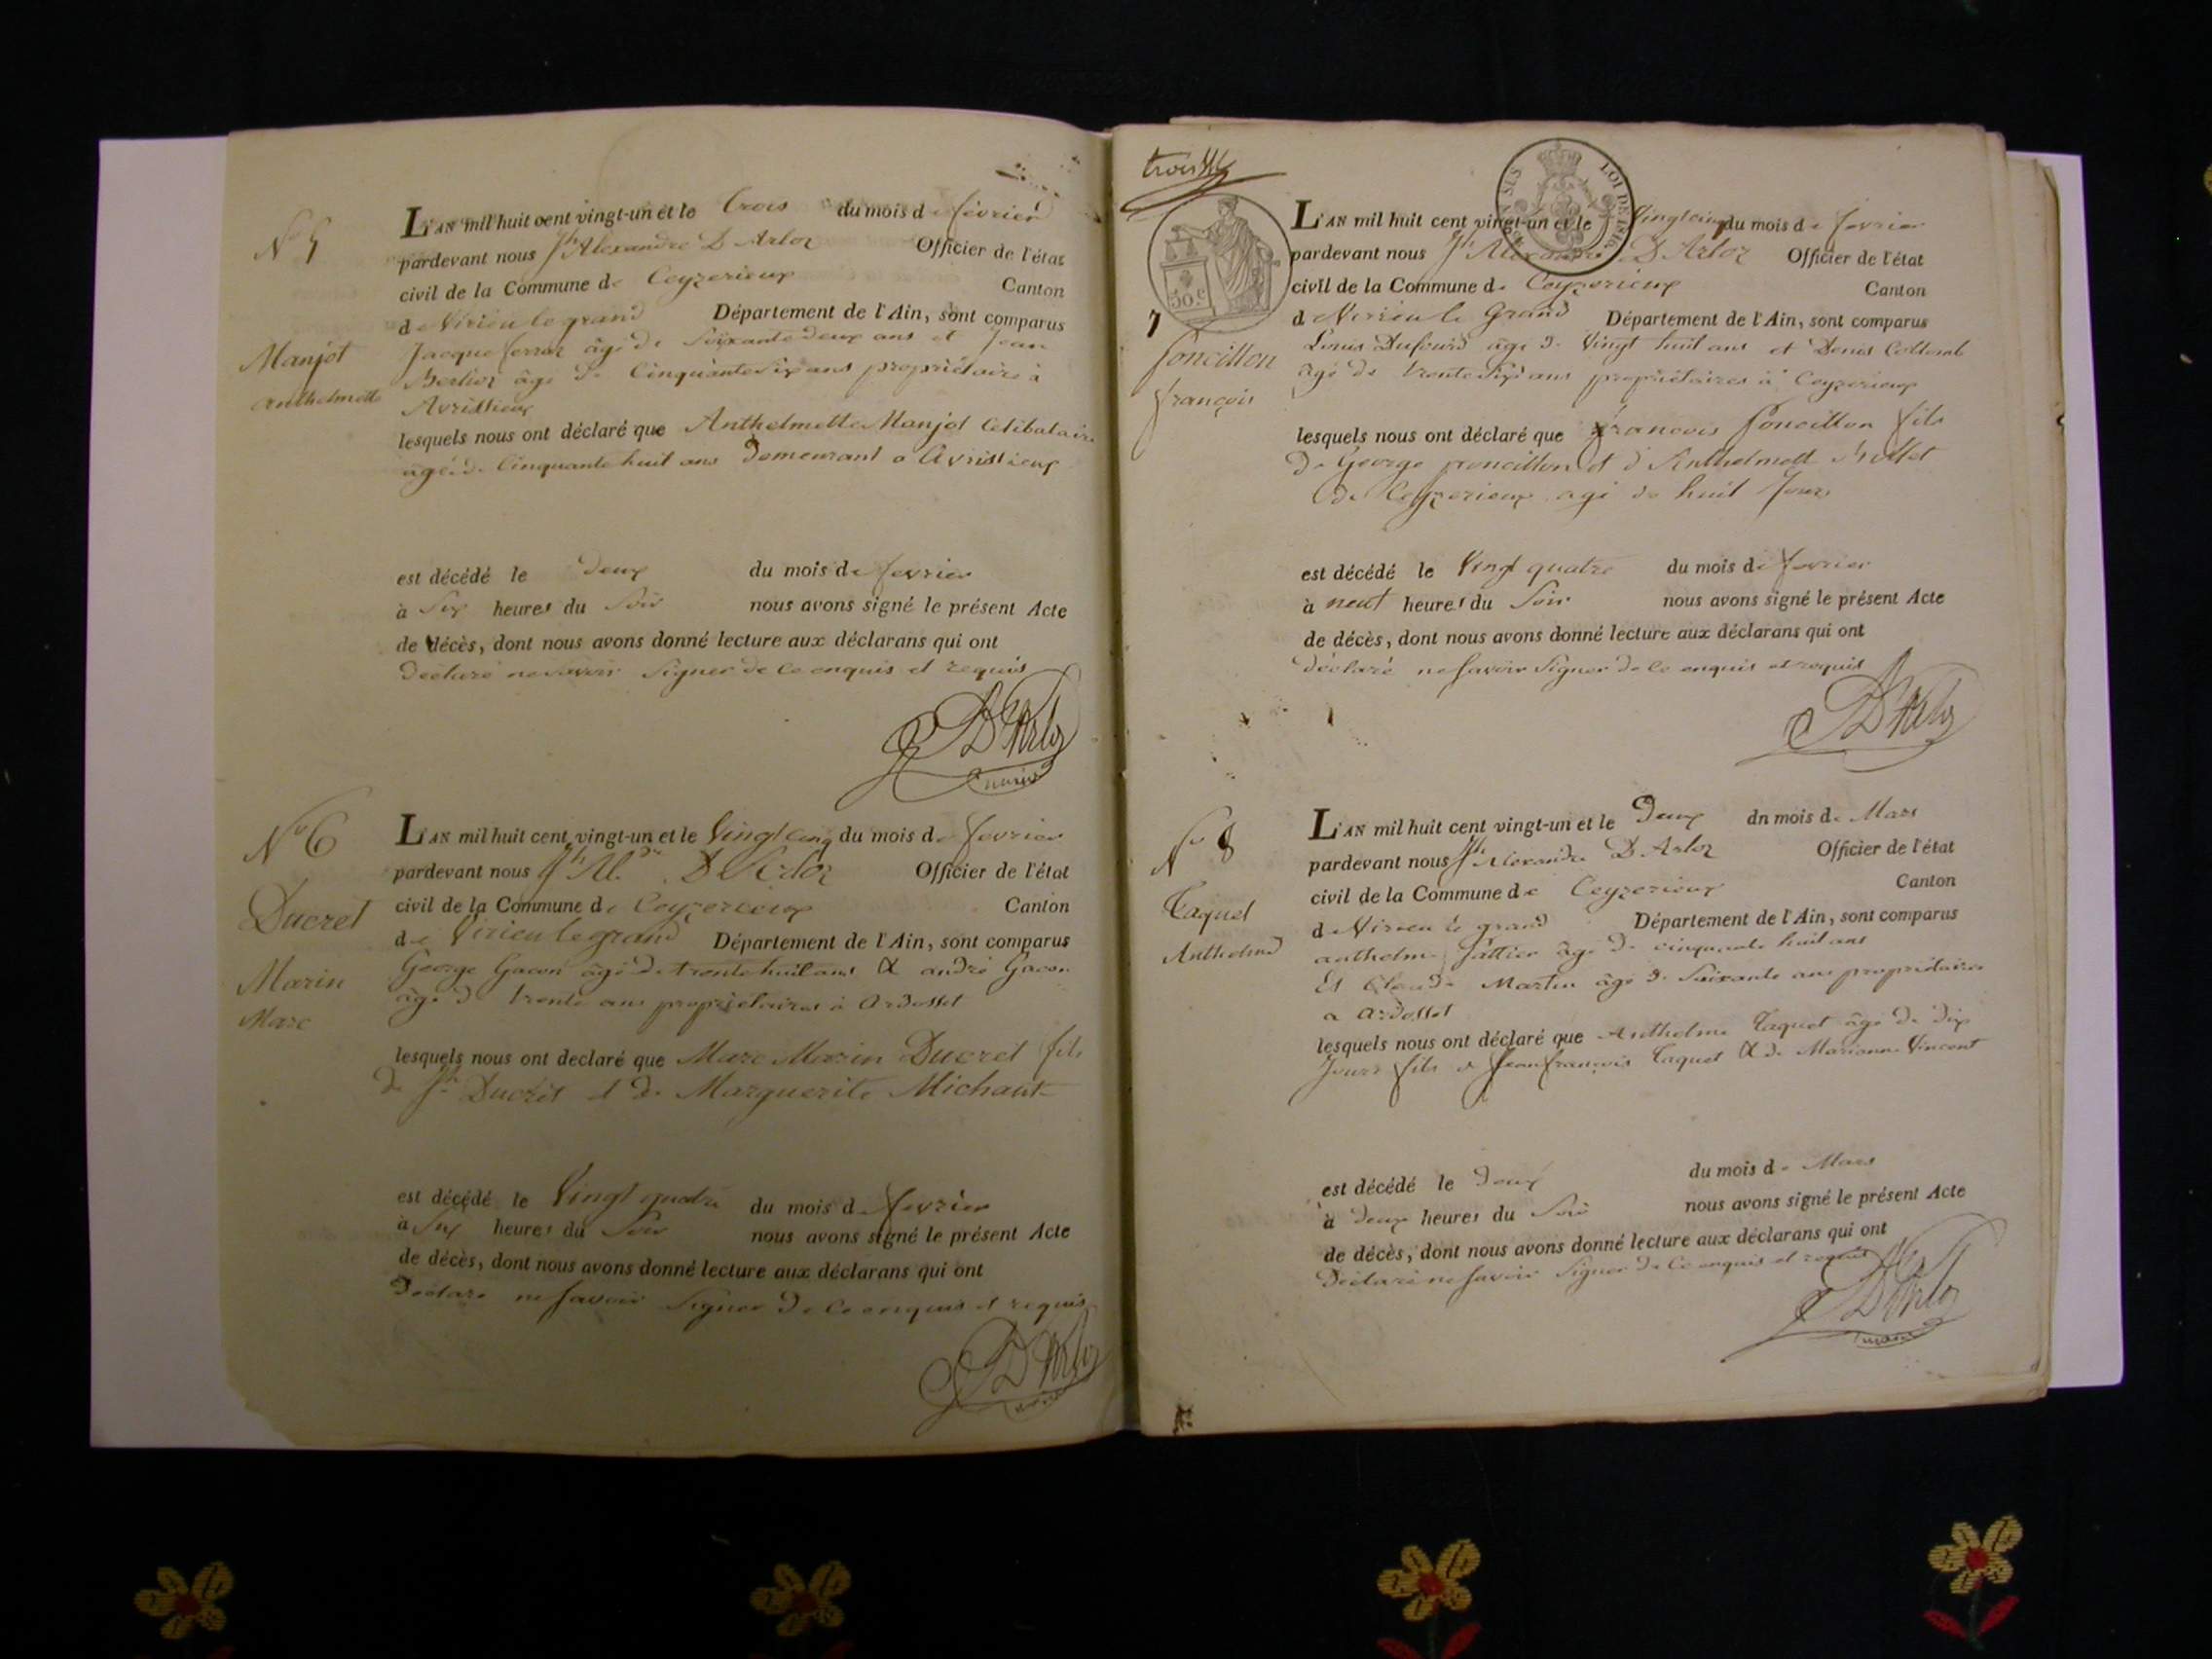 N° 5
Manjot
anthelmette
L'AN mil huit cent vingt-un et le trois du mois de février
pardevant nous Jh Alexandre D Arloz Officier de l'état
civil de la Commune de Ceyzerieux Canton
de Virieu le grand Département de l'Ain, sont comparus
Jacque ferroz âgé de Soixante deux ans et Jean
Berlioz âgé de Cinquante Six ans propriétaires à
Avrissieux
lesquels nous ont déclaré que Anthelmette Manjot Celibataire
âgée de Cinquante huit ans Demeurant a Avrissieux
est décédé le deux du mois de fevrier
à Six heures du Soir nous avons signé le présent Acte
de décès, dont nous avons donné lecture aux déclarans qui ont
déclaré ne Savoir Signer de ce enquis et requis
D'Arloz
maire
N° 6
Ducret
Marin
Marc
L'AN mil huit cent vingt-un et le Vingt Cinq du mois de fevrier
pardevant nous Jh Al.dre D'Arloz Officier de l'état
civil de la Commune de Ceyzerieux Canton
de Virieu le grand Département de l'Ain, sont comparus
George Gacon âgé de trente huit ans & andré Gacon
âgé de trente ans propriétaires à Ardosset
lesquels nous ont declaré que Marc Marin Ducret fils
de Jh Ducret et de Marguerite Michaut
est décédé le Vingt quatre du mois de fevrier
à Six heures du Soir nous avons signé le présent Acte
de décès, dont nous avons donné lecture aux déclarans qui ont
Déclaré ne Savoir Signer de ce enquis et requis
D'Arloz
maire
trois
LOI DE 1816
30 c
7
foncillon
françois
L'AN mil huit cent vingt-un et le Vingt cinq du mois de fevrier
pardevant nous Jh Alexandre D'Arloz Officier de l'état
civil de la Commune de Ceyzerieux Canton
d Virieu le Grand Département de l'Ain, sont comparus
Louis Dufourd âgé de Vingt huit ans et Denis Collomb
âgé de trente Six ans propriétaires à Ceyzerieux
lesquels nous ont déclaré que françois foncillon fils
de George froncillon et d'Anthelmett Mollet
de Ceyzerieux agé de huit Jours
est décédé le Vingt quatre du mois de fevrier
à neuf heures du Soir nous avons signé le présent Acte
de décès, dont nous avons donné lecture aux déclarans qui ont
déclaré ne Savoir Signer de ce enquis et requis
D'Arloz
N° 8
Taquet
Anthelme
L'AN mil huit cent vingt-un et le Deux dn mois de Mars
pardevant nous Jh Alexandre D. Arloz Officier de l'état
civil de la Commune de Ceyzerieux Canton
de Virieu le grand Département de l'Ain, sont comparus
anthelme fattier âgé de cinquante huit ans
Et Claude Martin âgé de Soixante ans propriétaires
a ardosset
lesquels nous ont déclaré que Anthelme Taquet âgé de dix
Jours fils de Jean françois Taquet & de Marianne Vincent
est décédé le deux du mois de Mars
à deux heures du Soir nous avons signé le présent Acte
de décès, dont nous avons donné lecture aux déclarans qui ont
Déclaré ne Savoir Signer de ce enquis et requis
D'Arloz
maire